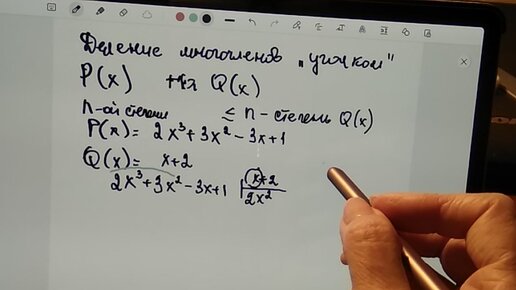 Деление многочленов „уголком"
P(x) на Q(x)
n-ой степени ≤ n - степень Q(x)
P(x) = 2x³+3x²-3x+1
Q(x) = x+2
2x³+3x²-3x+1 | x+2
2x²